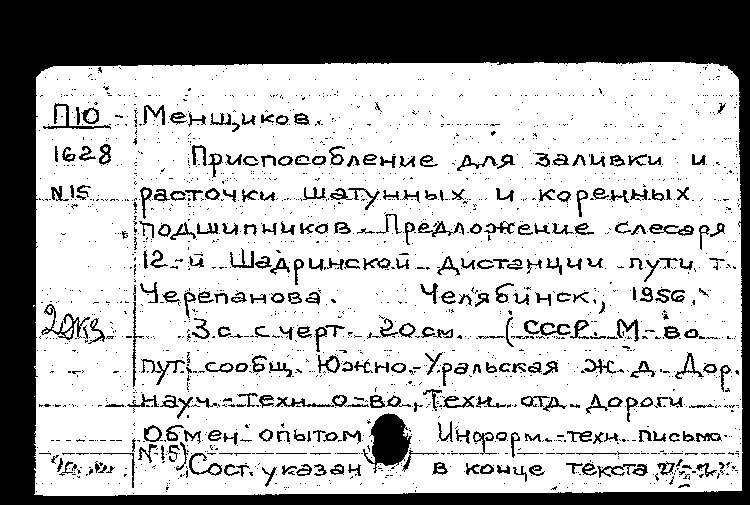 П10 Менщиков.
1628 Приспособление для заливки и
N15 расточки шатунных и коренных
подшипников. Предложение слесаря
12-й Шадринской дистанции пути т.
Черепанова. Челябинск, 1956.
2экз 3 с. с черт. 20 см. (СССР. М-во
пут. сообщ. Южно-Уральская ж. д. Дор.
науч.-техн. о-во, Техн. отд. дороги
Обмен опытом Информ.-техн. письмо
N15) Сост. указан в конце текста